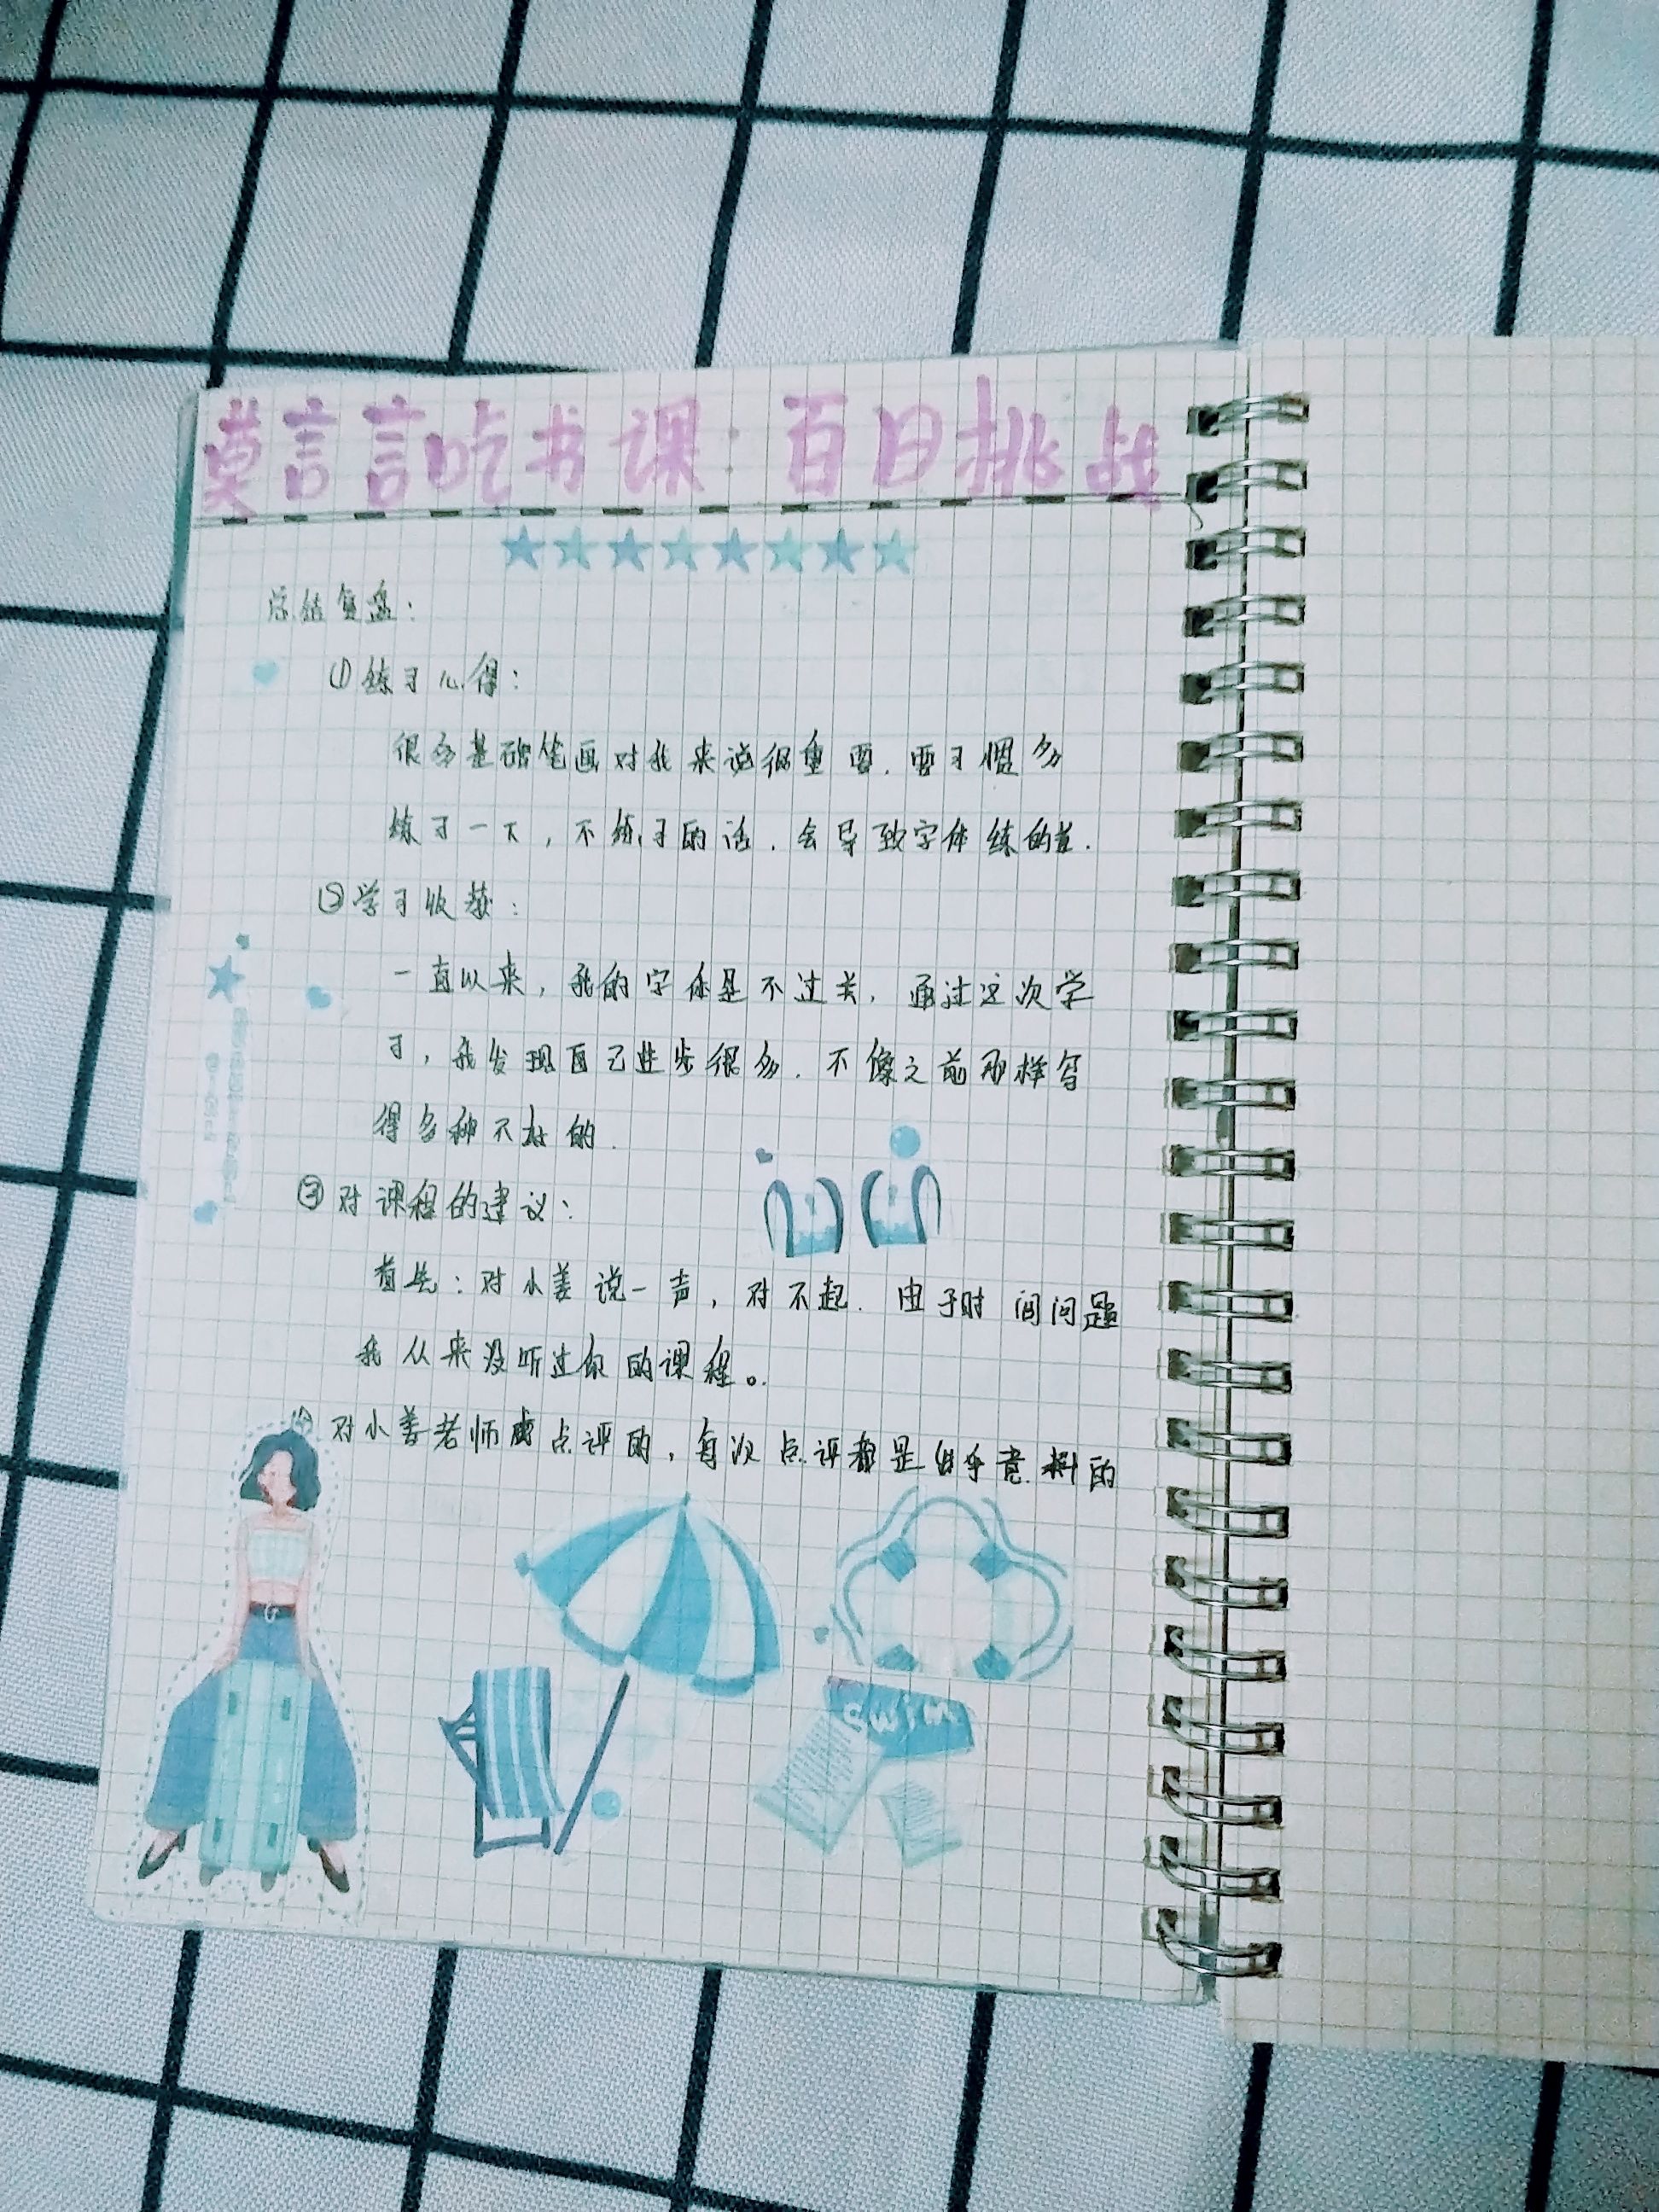 莫言言吃书课:百日挑战
总结复盘:
①练习心得:
很多基础笔画对我来说很重要.要习惯多
练习一下,不练习的话.会导致字体练的差.
②学习收获:
一直以来,我的字体是不过关.通过这次学
习,我发现自己进步很多.不像之前那样写
得多种不材的.
③对课程的建议:
首先:对小姜说一声,对不起.由于时间问题
我从来没听过你的课程。.
对小姜老师点评的,每次点评都是出乎意料的
swim